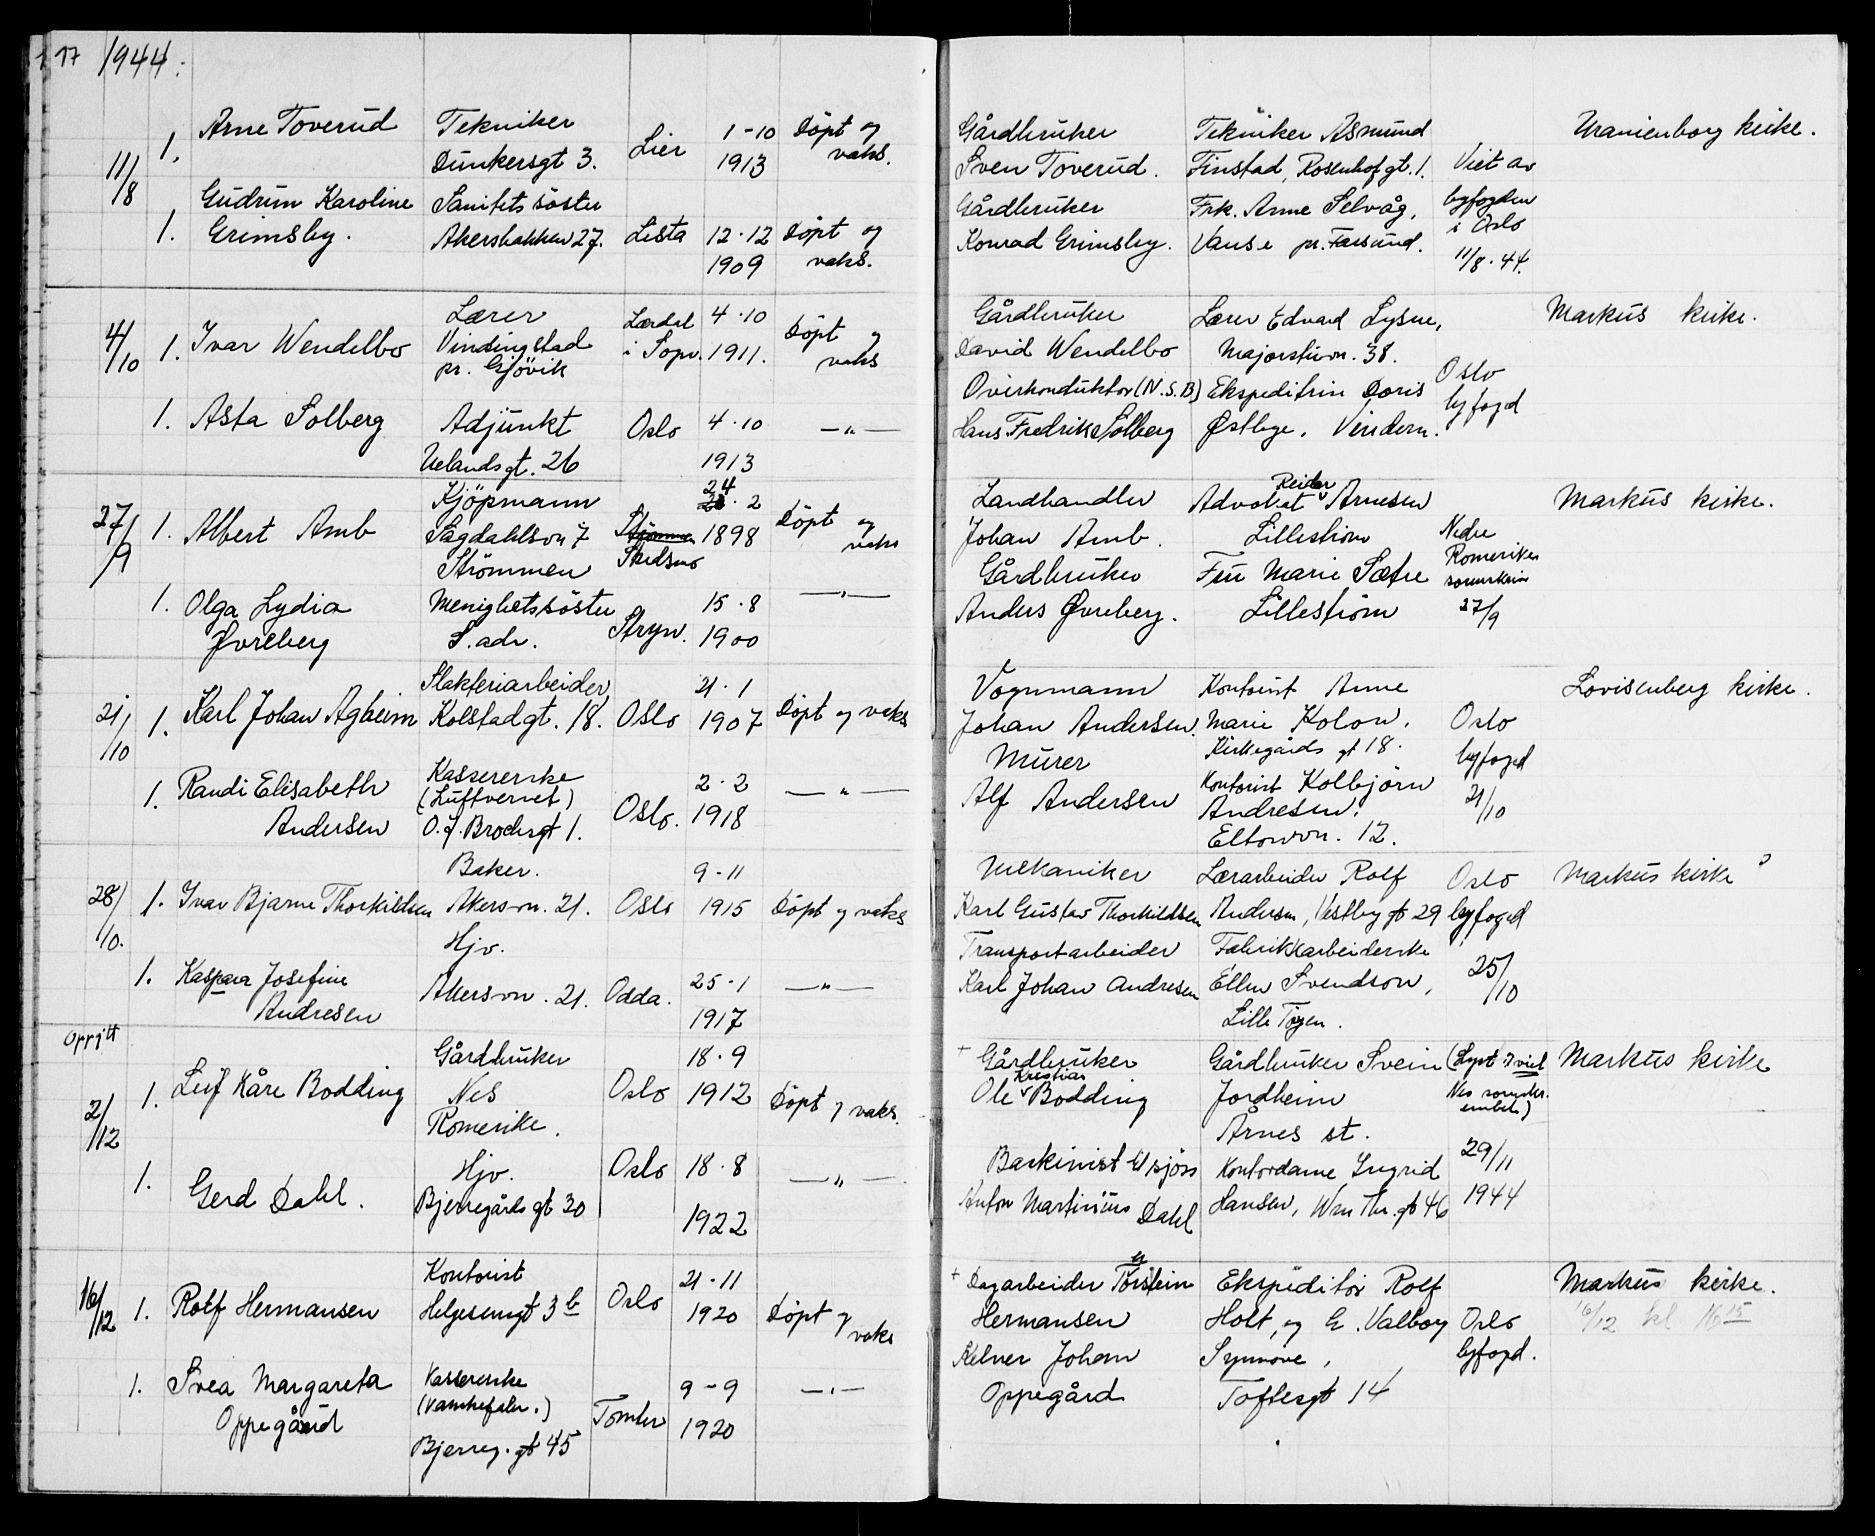 117 1944:
11/8 1. Arne Toverud Tekniker Dunkersgt 3. Lier 1-10 1913 Döpt og vaks. Gårdbruker Sven Toverud. Tekniker Asmund Finstad, Rosenhofgt. 1. Viet av byfogden i Oslo 11/8.44. Uranienborg kirke.
1. Gudrun Karoline Grimsby. Sanitetssöster Akersbakken 27. Lista 12.12 1909 Döpt og vaks. Gårdbruker Konrad Grimsby. Frk. Anne Selvåg, Vanse pr. Farsund.
4/10 1. Ivar Wendelbo Lærer Vindingstad pr. Gjövik Lærdal i Sogn. 4.10 1911. Döpt og vaks Gårdbruker David Wendelbo Lærer Edvard Lysne, Majorstuvn. 38. Oslo byfogd Markus kirke.
1. Asta Solberg Adjunkt Uelandsgt. 26 Oslo 4.10 1913 —"— Overkonduktör (N.S.B) Hans Fredrik Solberg Ekspeditrise Doris Østbye, Vindern.
27/9 1. Albert Amb Kjöpmann Sagdahlsvn 7 Strömmen Strömmen Skedsmo 24.2 1898 Döpt og vaks Landhandler Johan Amb. Advokat Reidar Arnesen Lilleström Nedre Romerike sorenskriv 27/9 Markus kirke.
1. Olga Lydia Øvreberg Menighetssöster S. adr. Stryn. 15.8 1900 —"— Gårdbruker Anders Øvreberg. Fru Marie Sætre Lilleström
21/10 1. Karl Johan Agheim Slakteriarbeider Kolstadgt. 18. Oslo 21.1 1907 Döpt og vaks Vognmann Johan Andersen. Kontorist Anne Marie Kolow, Kirkegårds gt 18. Oslo byfogd 21/10 Lovisenberg kirke.
1. Randi Elisabeth Andersen Kassererske (Luftvernet) O.J. Brochsgt 1. Oslo. 2.2 1918 —"— Murer Alf Andersen Kontorist Kolbjörn Andresen, Eltonvn. 12.
28/10. 1. Ivar Bjarne Thorkildsen Baker. Akersvn. 21. Oslo 9-11 1915 Döpt og vaks Mekaniker Karl Gustav Thorkildsen Lærarbeider Rolf Andersen, Vestbygt 29 Oslo byfogd 25/10 Markus kirke
1. Kaspara Josefine Andresen Hjv. Akersvn. 21. Odda. 25-1 1917 —"— Transportarbeider Karl Johan Andresen Fabrikkarbeiderske Ellen Svendson, Lille Töyen.
Oppgitt
2/12 1. Leif Kåre Bodding Gårdbruker Nes Romerike. Oslo 18.9 1912 Döpt og vaks. + Gårdbruker Ole Kristian Bodding Gårdbruker Svein Jordheim Årnes st. (Lyst viet Nes sorenskr. embete) 29/11 1944 Markus kirke
1. Gerd Dahl. Hjv. Bjerregårds gt 30 Oslo 18.8 1922 —"— Anton Martinius Dahl Kontordame Ingrid Hansen, Wm Thr. gt 46
16/12 1. Rolf Hermansen Kontorist Helgesensgt 3b Oslo 21-11 1920 Döpt og vaks + Dagarbeider Torstein Hermansen Ekspeditör Rolf Holt, og E. Valborg Synnöve, Toftesgt 14 Oslo byfogd. Markus kirke. 16/12 kl 16 15
1. Svea Margareta Oppegård Kassererske Bjerreg. gt 45 Tomter 9-9 1920 —"— Kelner Johan Oppegård